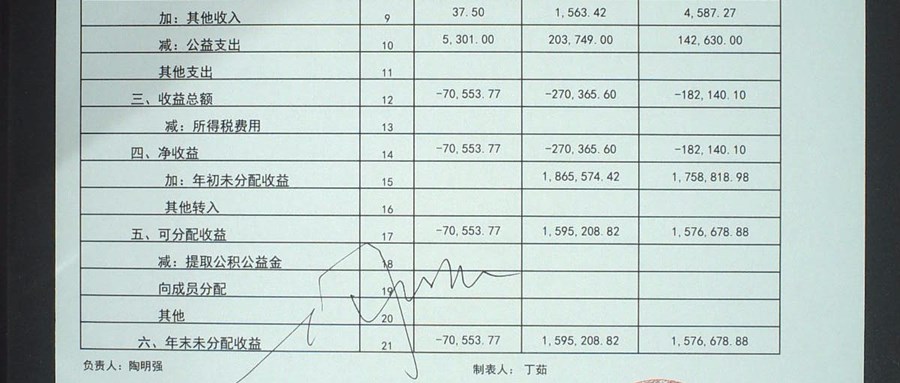 加：其他收入 9 37.50 1,563.42 4,587.27
减：公益支出 10 5,301.00 203,749.00 142,630.00
其他支出 11
三、收益总额 12 -70,553.77 -270,365.60 -182,140.10
减：所得税费用 13
四、净收益 14 -70,553.77 -270,365.60 -182,140.10
加：年初未分配收益 15 1,865,574.42 1,758,818.98
其他转入 16
五、可分配收益 17 -70,553.77 1,595,208.82 1,576,678.88
减：提取公积公益金 18
向成员分配 19
其他 20
六、年末未分配收益 21 -70,553.77 1,595,208.82 1,576,678.88
负责人：陶明强 制表人： 丁茹